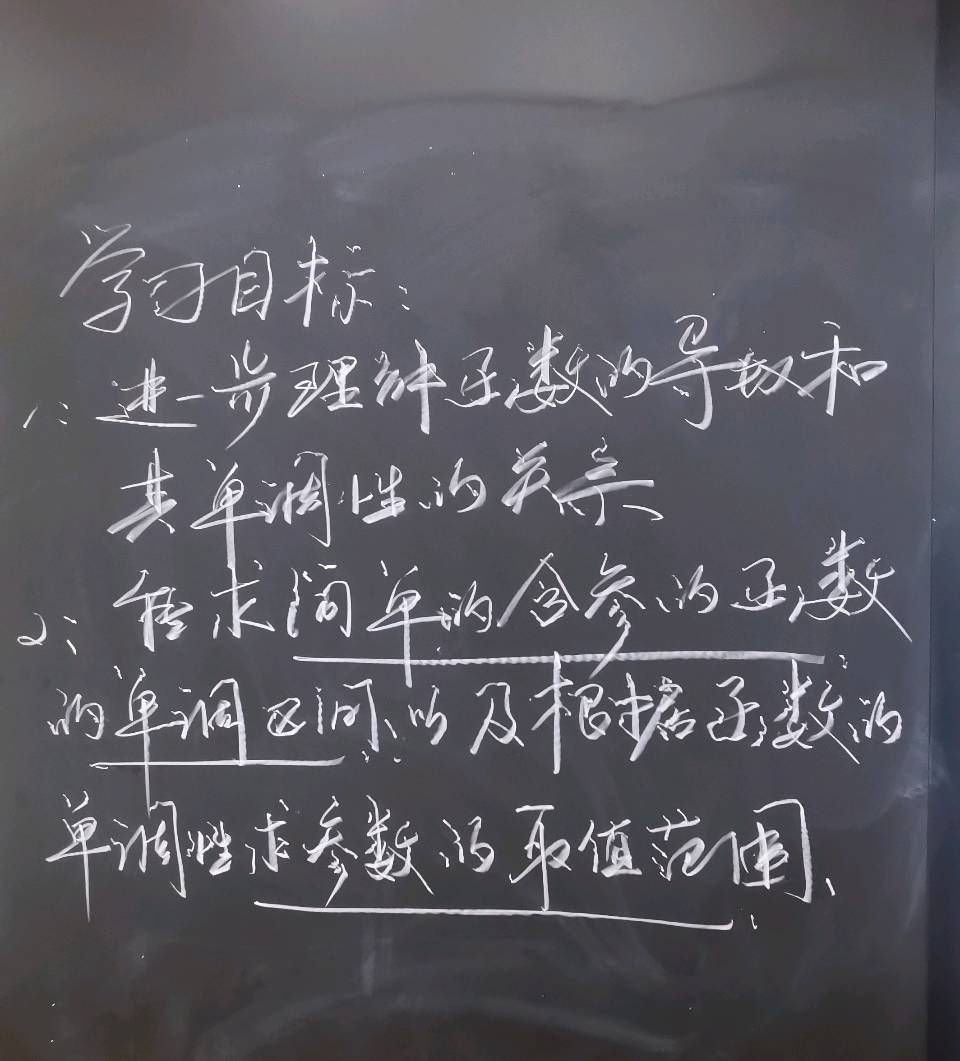 学习目标:
1: 进一步理解函数的导数和
其单调性的关系、
2: 能求简单的含参的函数
的单调区间、以及根据函数的
单调性求参数的取值范围、